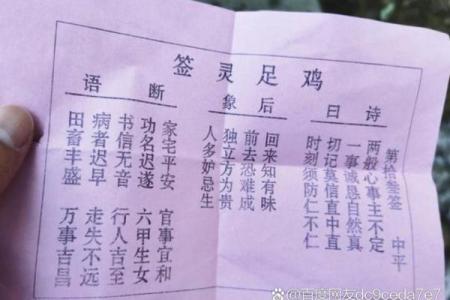 鸡足灵签
诗曰
第拾叁签 中平
两般心事主不定
一事诚恳自然真
切记莫信直中直
时刻须防仁不仁
后象
回来知有味
前去恐难成
独立方为贵
人多妒忌生
断语
家宅平安 官事宜和
功名迟遂 六甲生女
书信无音 行人吉至
病者迟早 走失不远
田畜丰盛 万事吉昌
@百度网友dc9ceda7e7